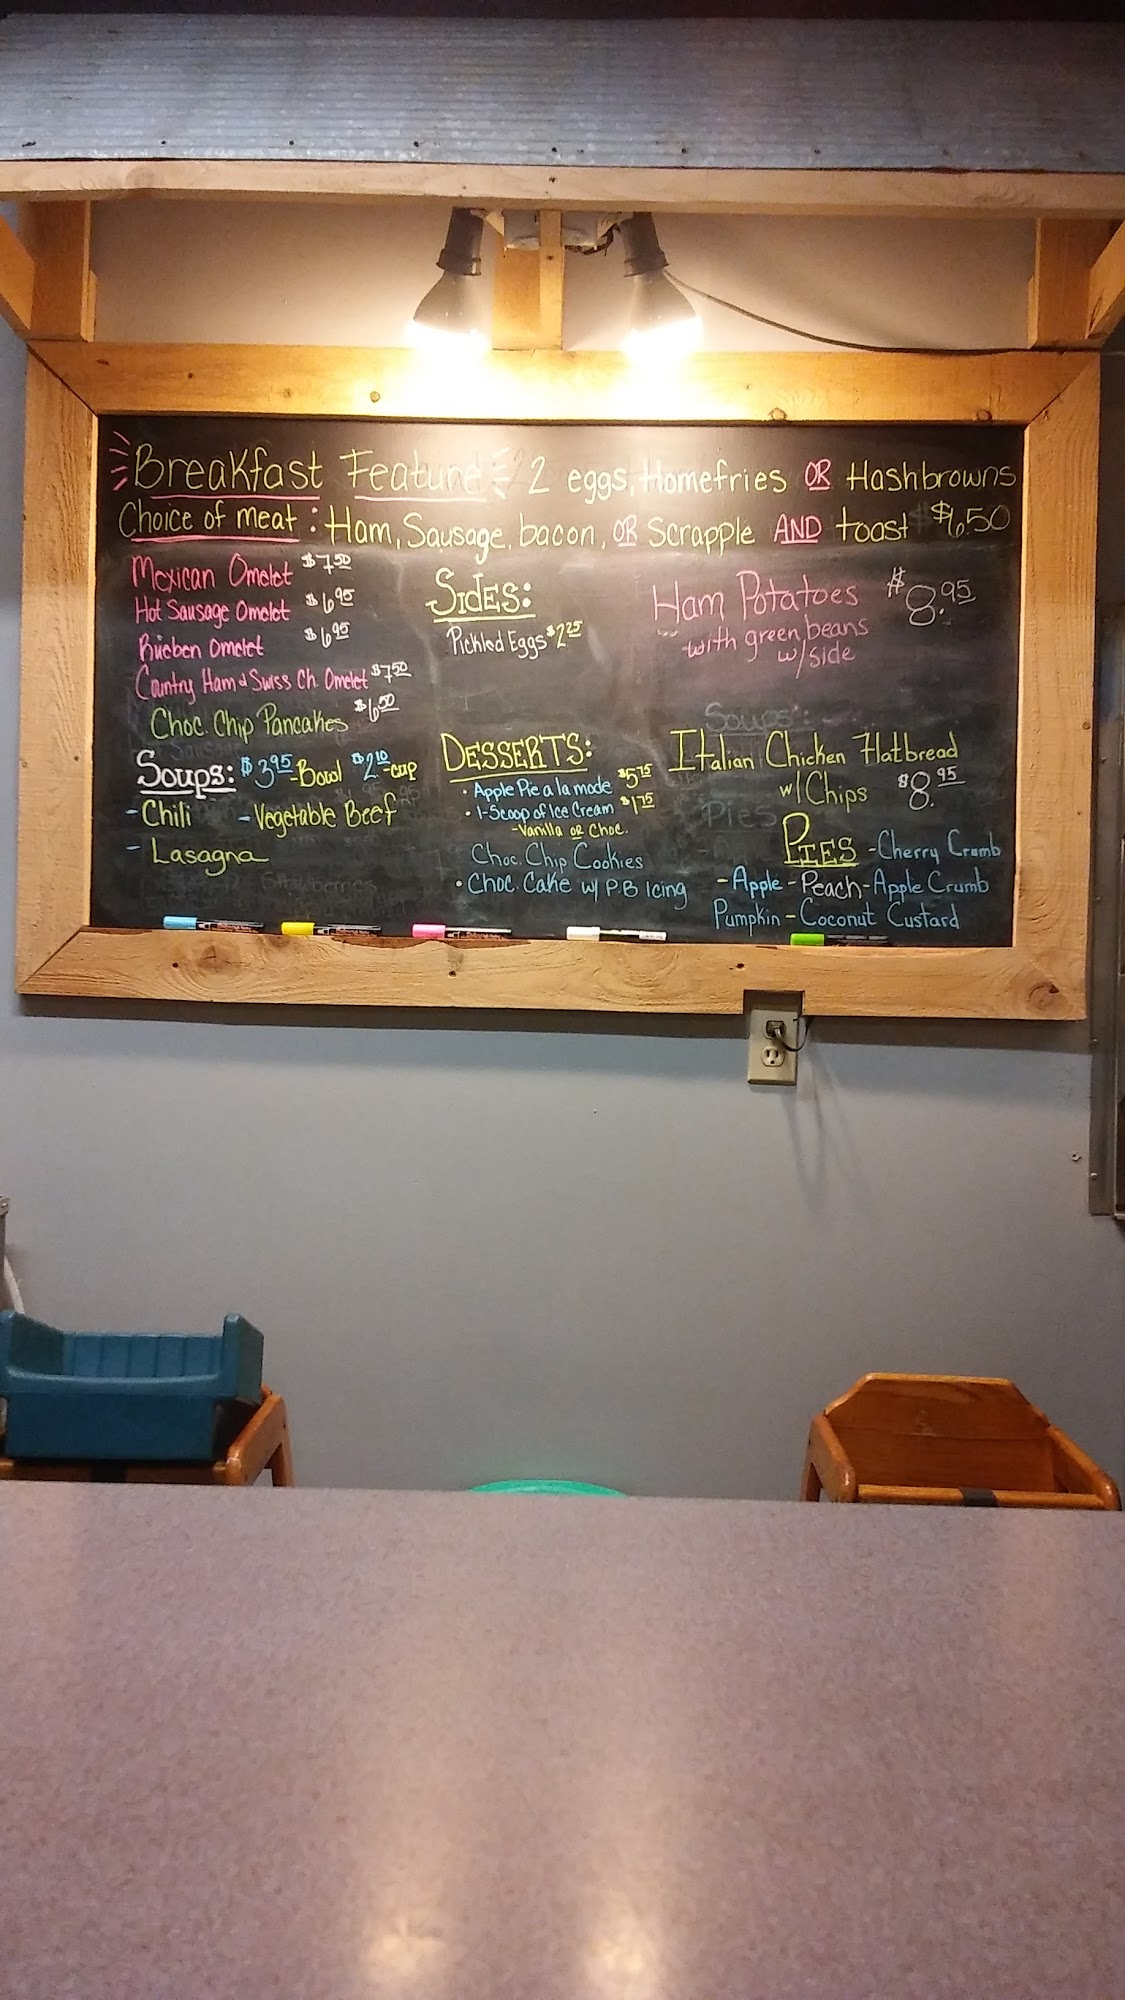 Breakfast Feature 2 eggs, Homefries OR Hashbrowns
Choice of meat: Ham, Sausage, bacon, OR Scrapple AND toast $6.50
Mexican Omelet $7.50
Hot Sausage Omelet $6.95
Rueben Omelet $6.95
Country Ham & Swiss Ch. Omelet $7.50
Choc. Chip Pancakes $6.50
Soups: $3.95-Bowl $2.10-cup
- Chili - Vegetable Beef
- Lasagna
SIDES:
Pickled Eggs $2.25
DESSERTS:
• Apple Pie a la mode $5.75
• 1-Scoop of Ice Cream $1.75
-Vanilla OR Choc.
Choc. Chip Cookies
• Choc. Cake w/ P.B Icing
Ham Potatoes $8.95
with green beans
w/side
Soups:
Italian Chicken Flatbread
w/ Chips $8.95
Pies
PIES -Cherry Crumb
-Apple -Peach -Apple Crumb
Pumpkin - Coconut Custard